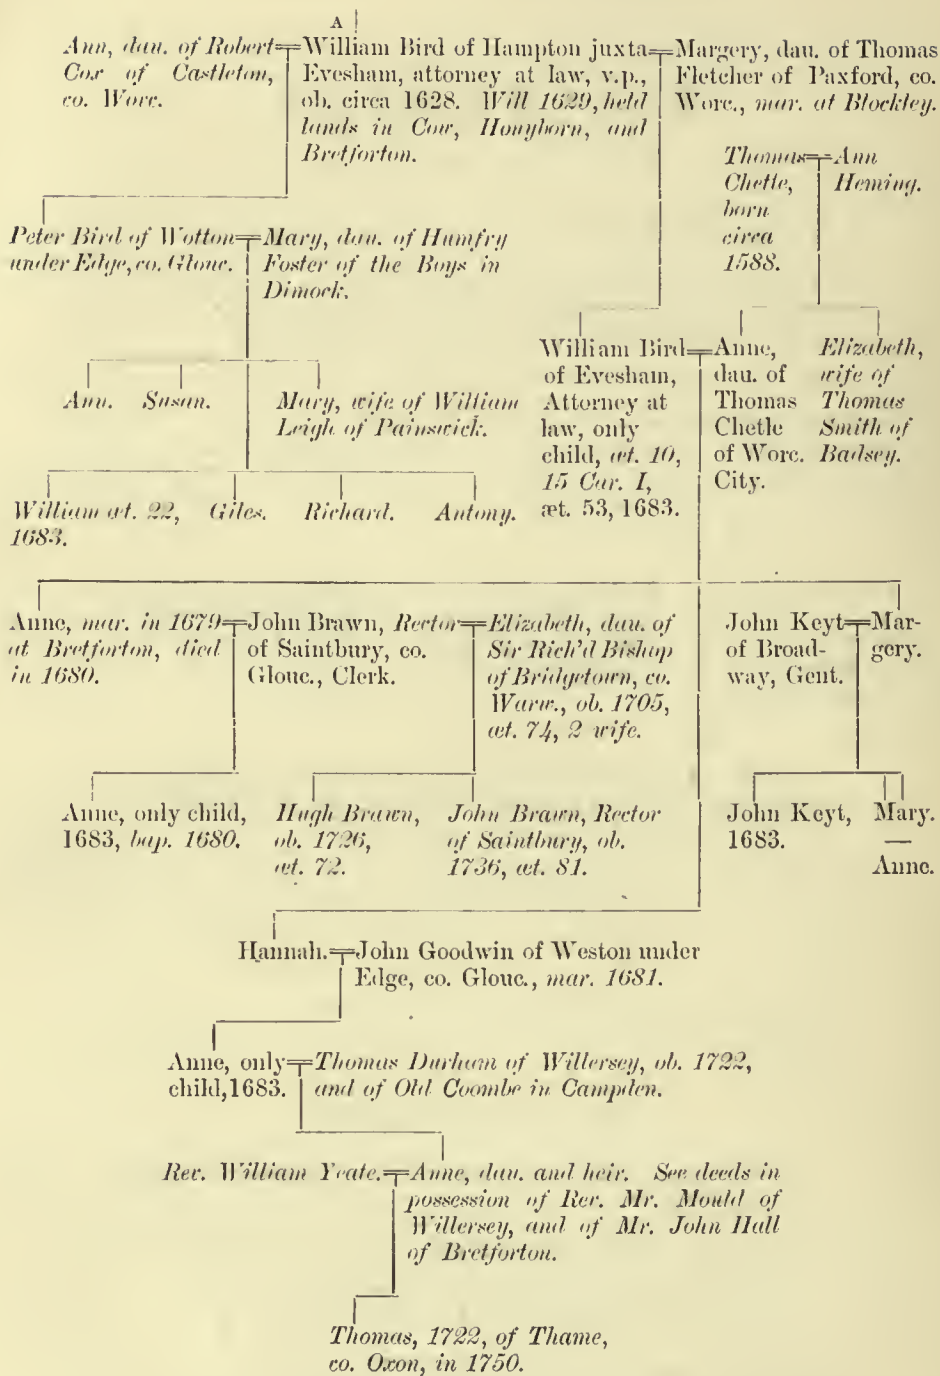 A
Ann, dau. of Robert
Cox of Castleton,
co. Worc.
William Bird of Hampton juxta
Evesham, attorney at law, v.p.,
ob. circa 1628. Will 1629, held
lands in Cow, Honyborn, and
Bretforton.
Margery, dau. of Thomas
Fletcher of Paxford, co.
Worc., mar. at Blockley.
Thomas
Chetle,
born
circa
1588.
Ann
Heming.
Peter Bird of Wotton
under Edge, co. Glouc.
Mary, dau. of Humfry
Foster of the Boys in
Dimock.
William Bird
of Evesham,
Attorney at
law, only
child, æt. 10,
15 Car. I,
æt. 53, 1683.
Anne,
dau. of
Thomas
Chetle
of Worc.
City.
Elizabeth,
wife of
Thomas
Smith of
Badsey.
Ann.
Susan.
Mary, wife of William
Leigh of Painswick.
William æt. 22,
1683.
Giles.
Richard.
Antony.
Anne, mar. in 1679
at Bretforton, died
in 1680.
John Brawn, Rector
of Saintbury, co.
Glouc., Clerk.
Elizabeth, dau. of
Sir Rich'd Bishop
of Bridgetown, co.
Warw., ob. 1705,
æt. 74, 2 wife.
John Keyt
of Broad-
way, Gent.
Mar-
gery.
Anne, only child,
1683, bap. 1680.
Hugh Brawn,
ob. 1726,
æt. 72.
John Brawn, Rector
of Saintbury, ob.
1736, æt. 81.
John Keyt,
1683.
Mary.
—
Anne.
Hannah.
John Goodwin of Weston under
Edge, co. Glouc., mar. 1681.
Anne, only
child, 1683.
Thomas Durham of Willersey, ob. 1722,
and of Old Coombe in Campden.
Rev. William Yeate.
Anne, dau. and heir. See deeds in
possession of Rev. Mr. Mould of
Willersey, and of Mr. John Hall
of Bretforton.
Thomas, 1722, of Thame,
co. Oxon, in 1750.